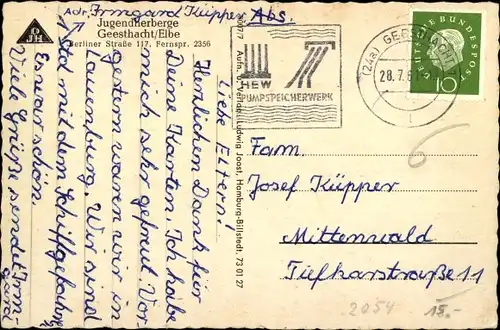 Adr. Irmgard Küpper Abs.
DJH
Jugendherberge
Geesthacht/Elbe
Berliner Straße 117. Fernspr. 2356
Liebe Eltern!
Herzlichen Dank für
Deine Karten. Ich habe
mich sehr gefreut. Vor-
gestern waren wir in
Lauenburg. Wir sind
mit dem Schiff gefahren
Es war schön.
Viele Grüße sendet Irm-
gard
Aufn. u. Verlag: Ludwig Joost, Hamburg-Billstedt, 73 01 27
HEW
PUMPSPEICHERWERK
(24a) GEESTHACHT
28.7.6
DEUTSCHE BUNDESPOST
10
6
Fam.
Josef Küpper
Mittenwald
Tiefkarstraße 11
2054
15.-